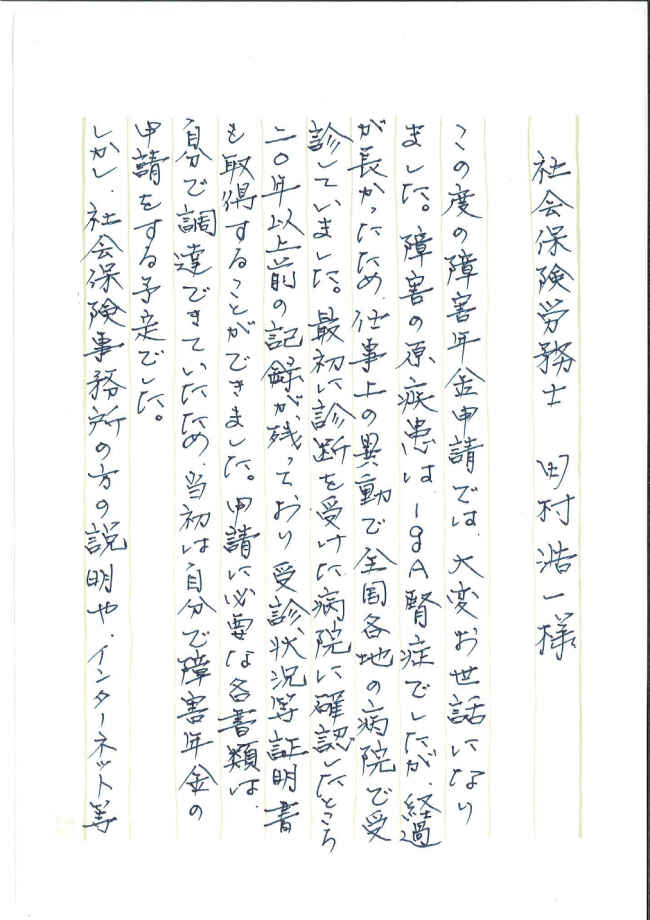 社会保険労務士 町村浩一様
この度の障害年金申請では、大変お世話になり
ました。障害の原疾患はIgA腎症でしたが、経過
が長かったため、仕事上の異動で全国各地の病院で受
診していました。最初に診断を受けた病院に確認したところ
二〇年以上前の記録が残っており、受診状況等証明書
も取得することができました。申請に必要な各書類は、
自分で調達できていたため、当初は自分で障害年金の
申請をする予定でした。
しかし、社会保険事務所の方の説明や、インターネット等